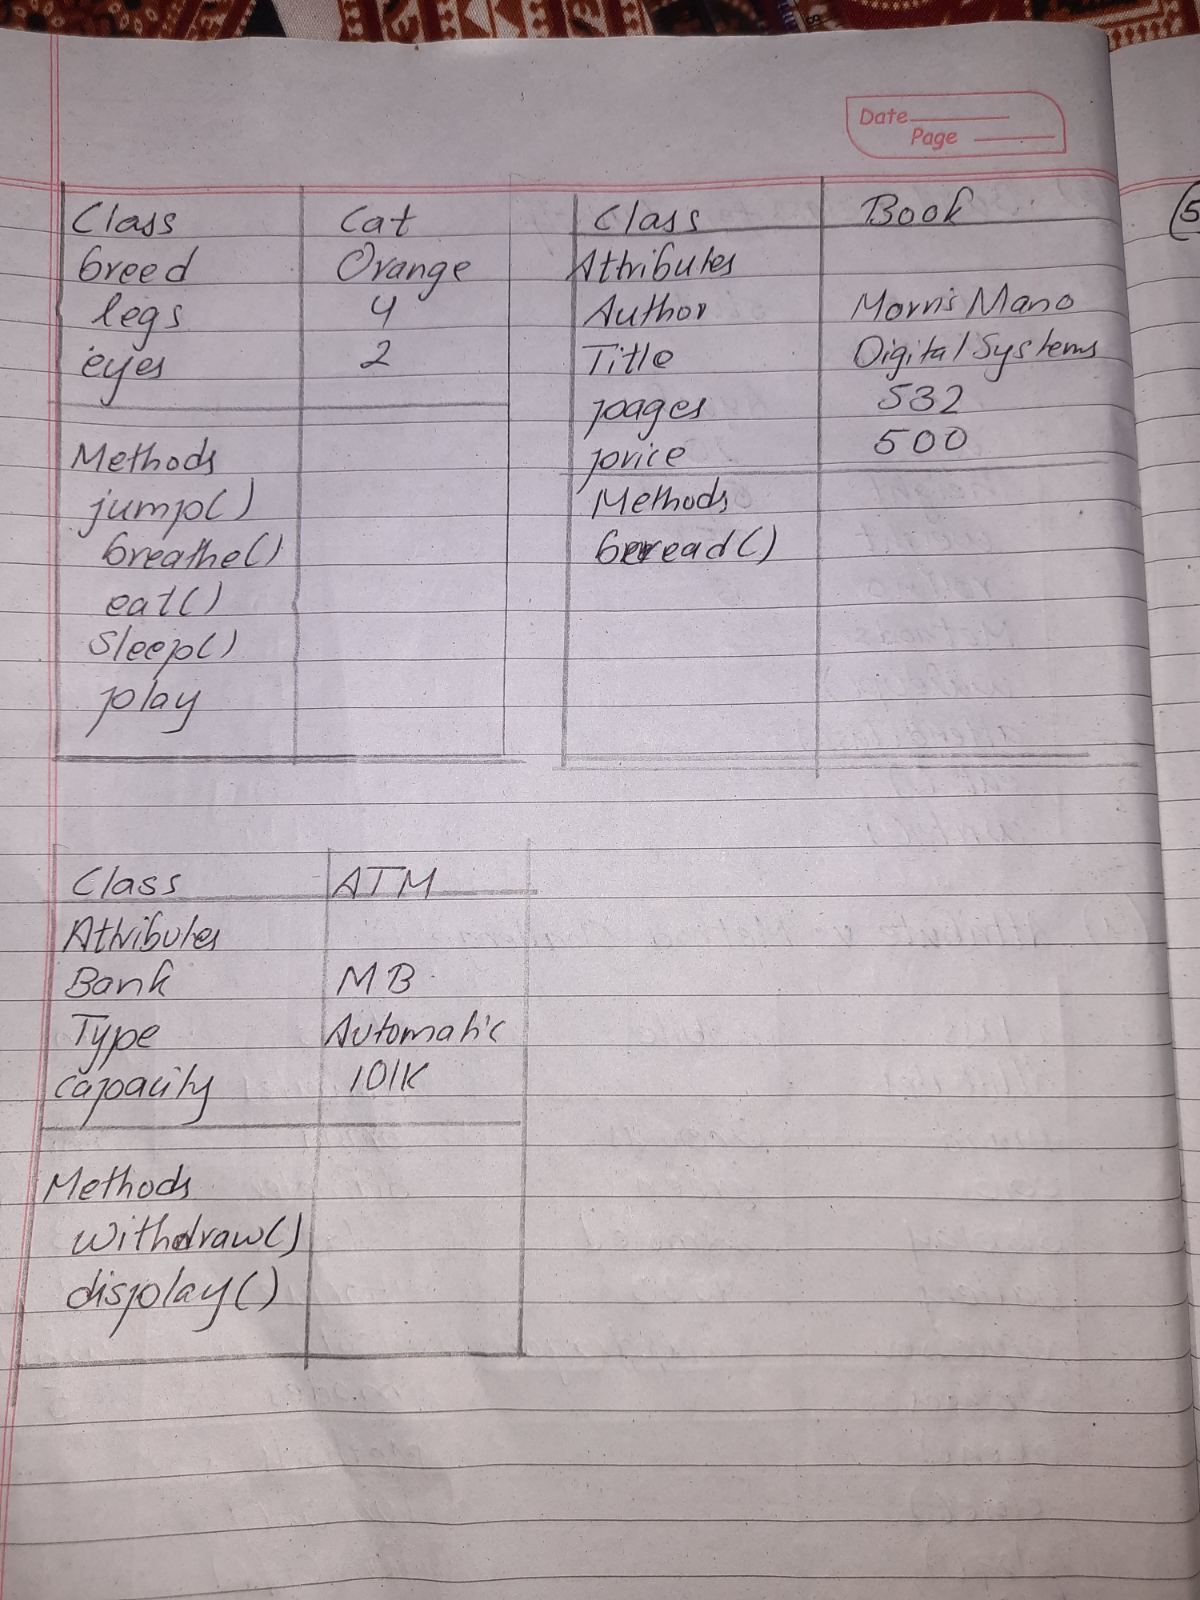 Date
Page
Class Cat
breed Orange
legs 4
eyes 2
Methods
jump()
breathe()
eat()
Sleep()
play
Class Book
Attributes
Author Morris Mano
Title Digital Systems
pages 532
price 500
Methods
read()
Class ATM
Attributes
Bank MB
Type Automatic
capacity 101K
Methods
withdraw()
display()
(5